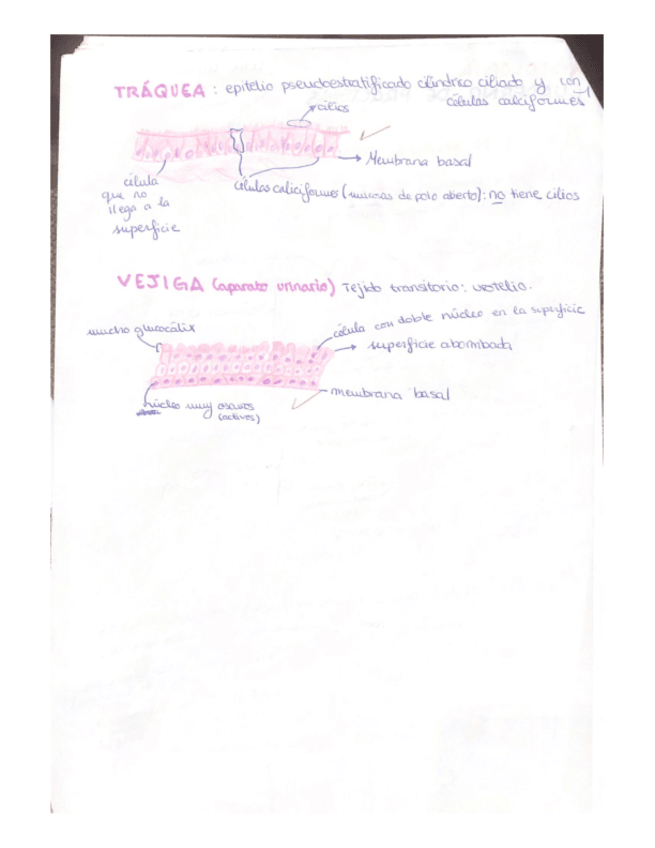 TRÁQUEA : epitelio pseudoestratificado cilíndrico ciliado y con
células calciformes
cilios
Membrana basal
célula
que no
llega a la
superficie
Células caliciformes (mucosas de polo abierto): no tiene cilios
VEJIGA (aparato urinario) Tejido transitorio: urotelio.
célula con doble núcleo en la superficie
mucho glucocálix
superficie abombada
membrana basal
núcleo muy oscuros
(activos)